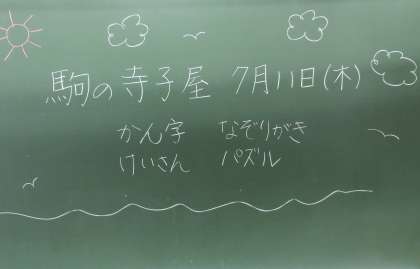 駒の寺子屋 7月11日(木)
かん字 なぞりがき
けいさん パズル